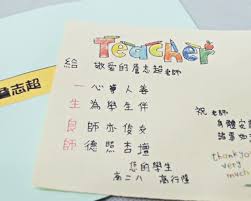 Teacher
給 敬愛的詹志超老師
一心
生為學生伴
良師亦 友
師德照杏壇
您的學生
高二八
祝 老師
身體
thank you
very
much
志超